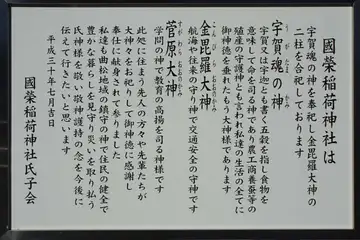 國榮稲荷神社は
宇賀魂の神を奉祀し金毘羅大神の
二柱を合祀しております
うがたまのかみ
宇賀魂の神
宇賀又は宇迦とも書く五穀を指し食物を
意味する命を司る神であり農工商養蚕等の
殖産の守護神とも言われ私達の生活の全てに
御神徳を垂れたもう大神様であります
こんぴらおおかみ
金毘羅大神
航海や往来の守り神で交通安全の守神です
菅原大神
学問の神で教育の高揚を司る神様です
此処に住まう先人の方々や先輩たちが
大神々をお祀りして御神徳に感謝し
奉仕に献身されて参りました
私達も曲松地域の鎮守の神で住民の健全で
豊かな暮らしを見守り災いを取り払う
氏神様を敬い敬神護持の念を今後に
伝えて行きたいと思います
平成三十年七月吉日
國榮稲荷神社氏子会